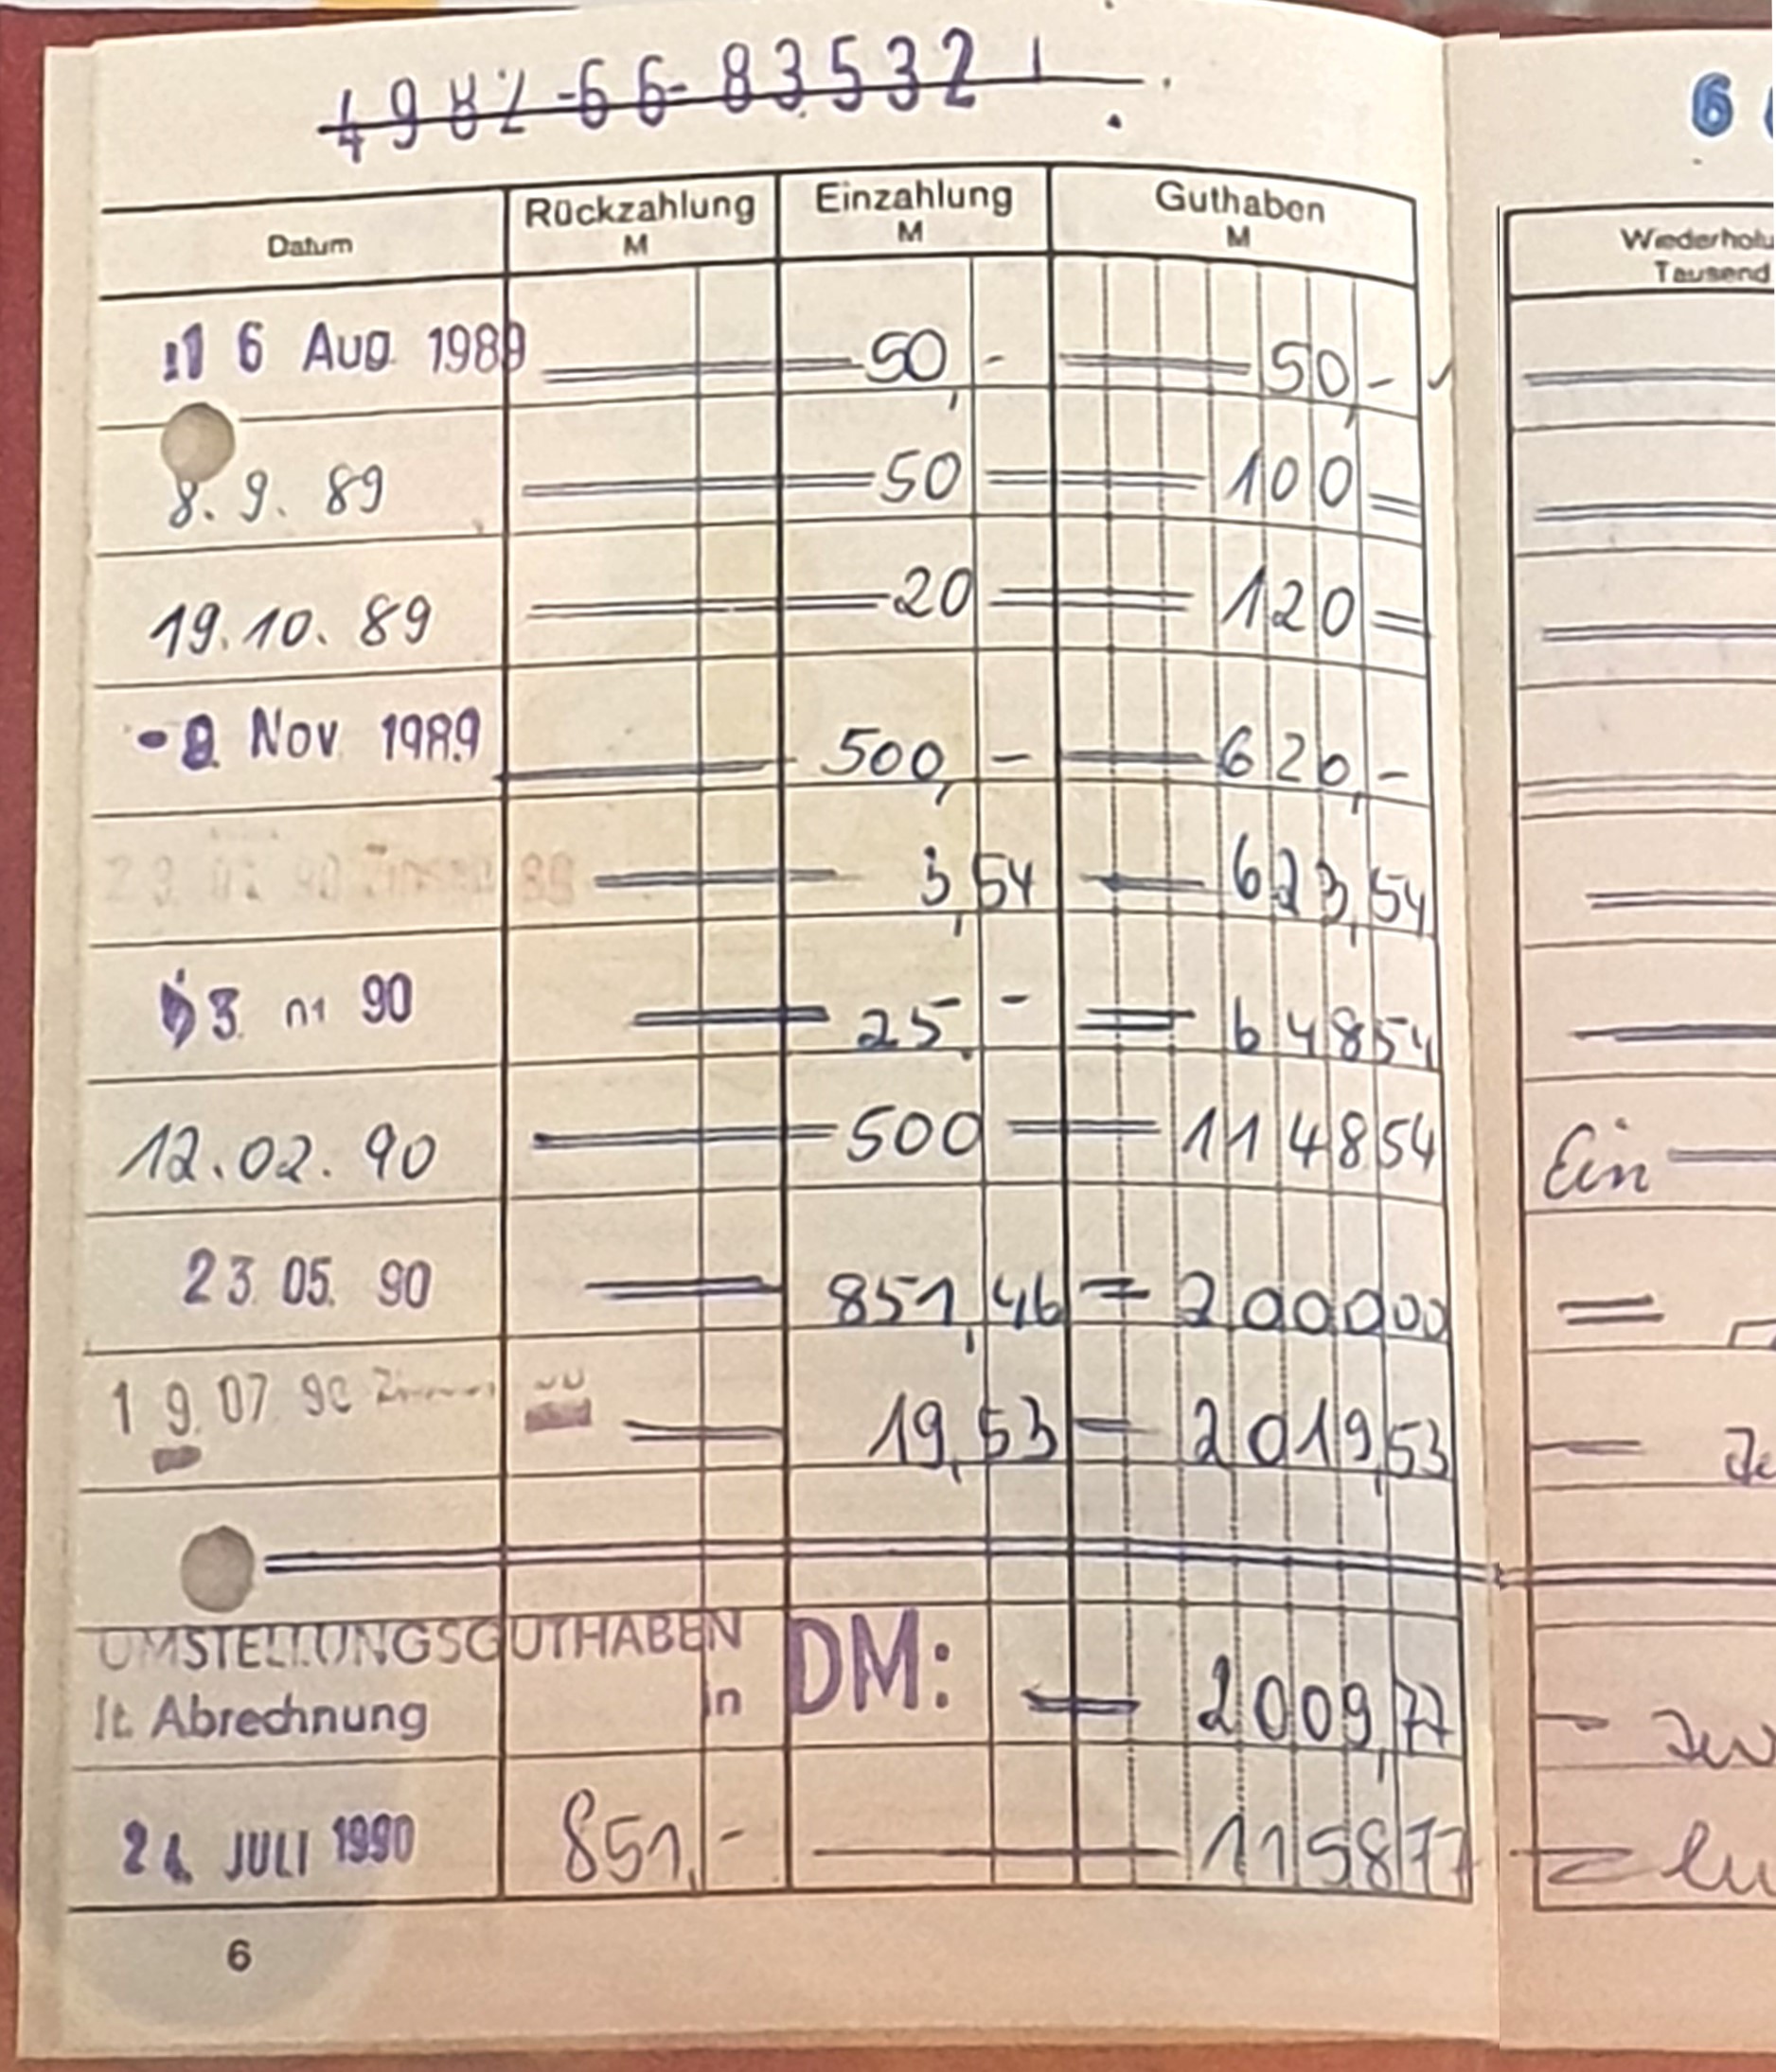 4982-66-83532 1
6
Datum Rückzahlung M Einzahlung M Guthaben M
Wiederholu
Tausend
16 Aug 1989 50,- 50,-
8.9.89 50 100
19.10.89 20 120
Nov 1989 500,- 620,-
3,54 623,54
3 01 90 25,- 648 54
12.02.90 500 1148 54 Ein
23.05.90 851,46 2000 00
19.07.90 19,53 2019,53
UMSTELLUNGSGUTHABEN
lt. Abrechnung in DM: 2009,77
24. JULI 1990 851,- 1158 77
6